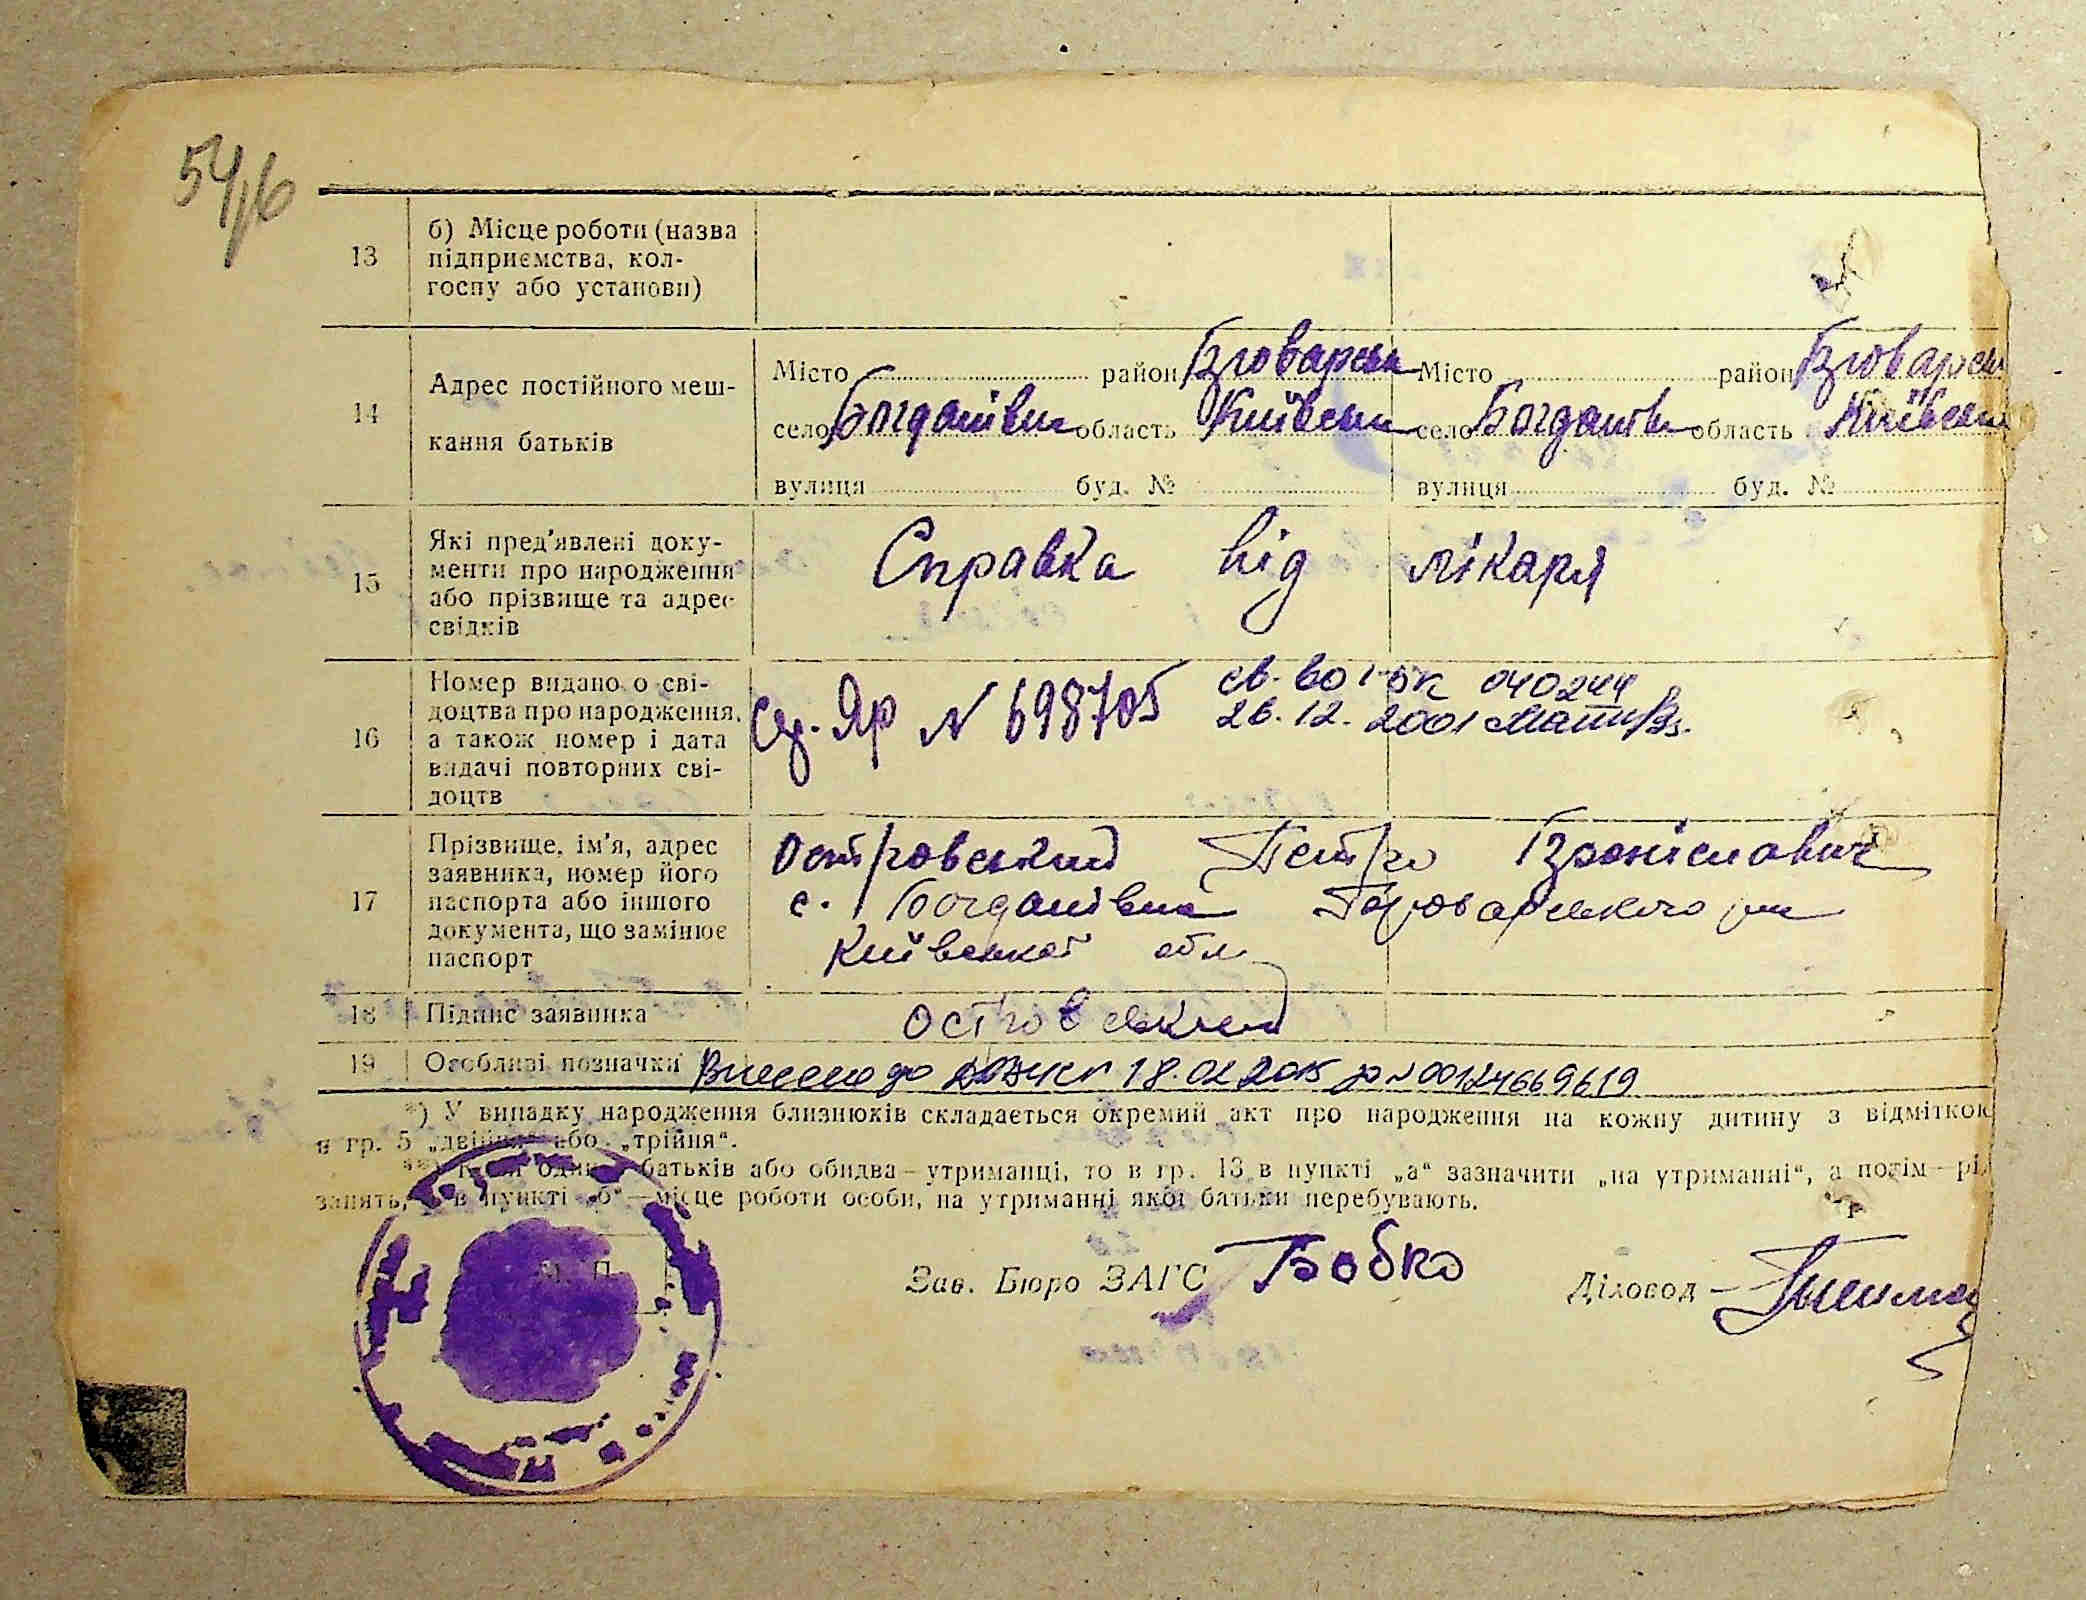 54/16
13
б) Місце роботи (назва
підприємства, кол-
госпу або установи)
14
Адрес постійного меш-
кання батьків
Місто район Броварськ
село Богданівка область Київськ
вулиця буд. №
Місто район Броварськ
село Богданівк область Київськ
вулиця буд. №
15
Які пред'явлені доку-
менти про народження
або прізвище та адрес
свідків
Справка від лікаря
16
Номер видано о сві-
доцтва про народження,
а також номер і дата
видачі повторних сві-
доцтв
Яр N 698705
св-во І-ОК 040244
26.12.2001
17
Прізвище, ім'я, адрес
заявника, номер його
паспорта або іншого
документа, що замінює
паспорт
Островський Петро Броніславич
с. Богданівка Броварського р-ну
Київської обл.
18
Підпис заявника
Островский
19
Особливі позначки
Внесено до ДРАЦСГ 18.02.2015 р N 00124669619
*) У випадку народження близнюків складається окремий акт про народження на кожну дитину з відміткою
в гр. 5 „двійня“ або „трійня“.
один батьків або обидва—утриманці, то в гр. 13 в пункті „а“ зазначити „на утриманні“, а потім—рі
занять, в пункті „б“—місце роботи особи, на утриманні якої батьки перебувають.
М. П.
Зав. Бюро ЗАГС Бобко
Діловод